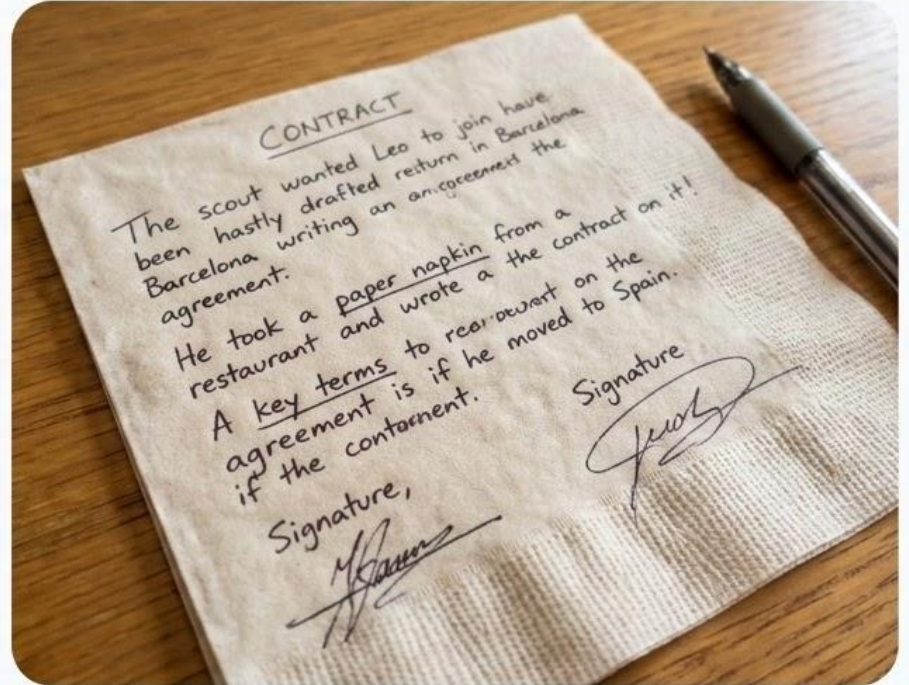 CONTRACT
The scout wanted Leo to join have
been hastly drafted resturn in Barcelona
Barcelona writing an the
agreement.
He took a paper napkin from a
restaurant and wrote a the contract on it!
A key terms to on the
agreement is if he moved to Spain.
if the contornent.
Signature
Signature,